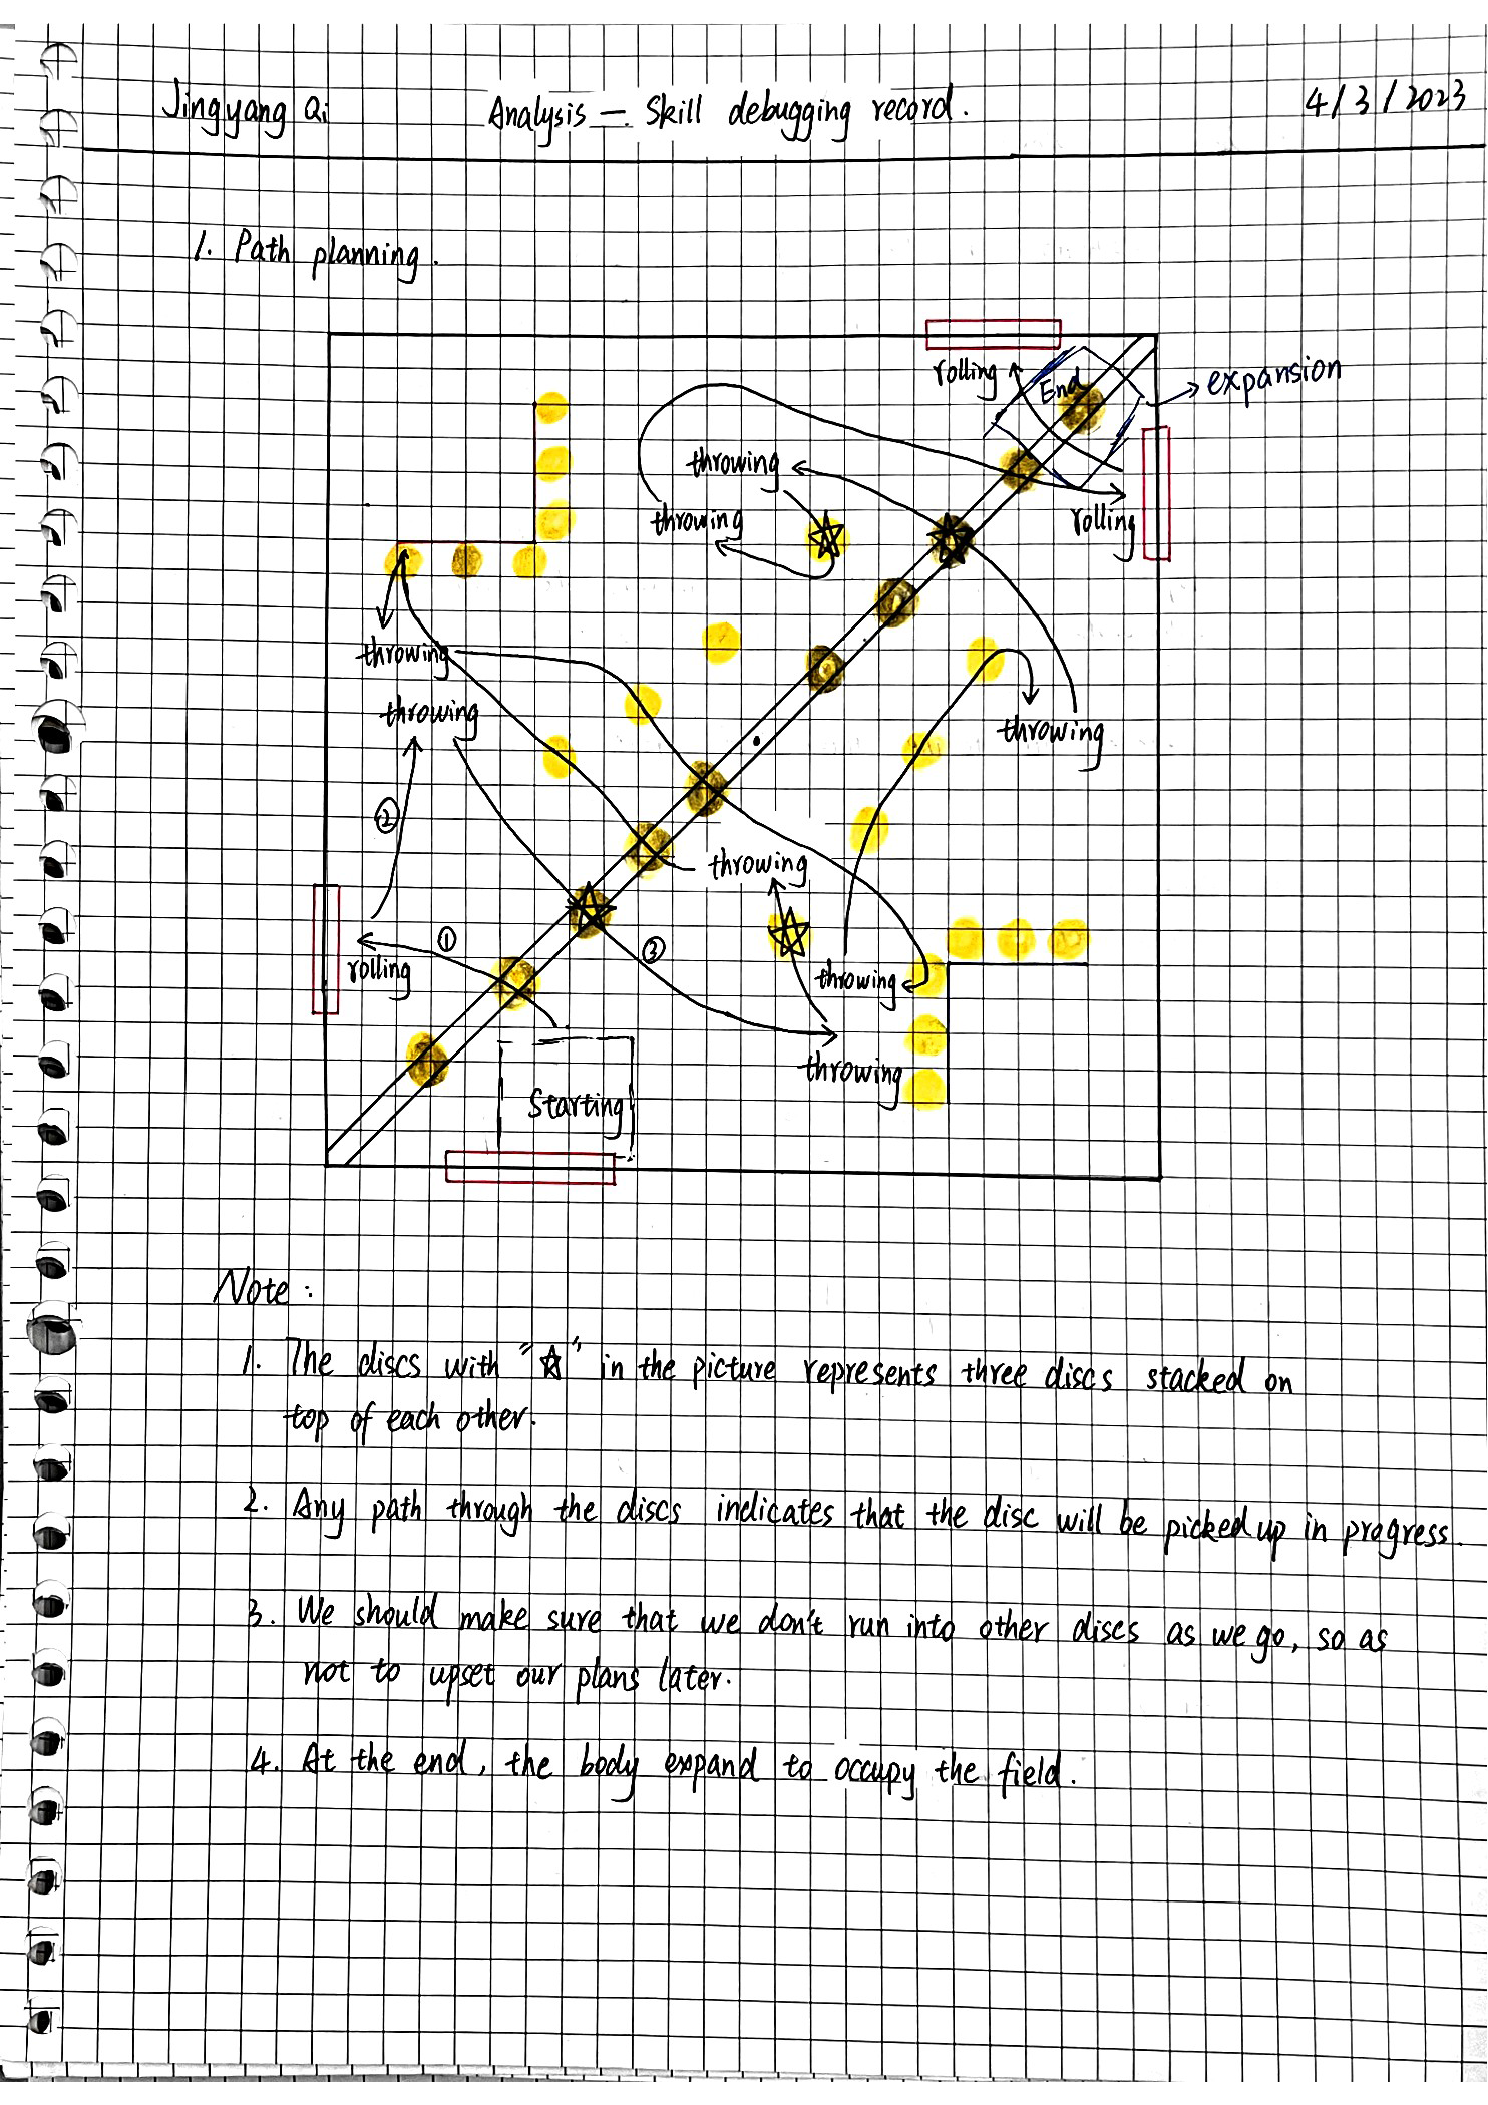 Jingyang Qi
Analysis — Skill debugging record.
4/3/2023
1. Path planning.
rolling
End
expansion
throwing
throwing
rolling
throwing
throwing
throwing
②
throwing
①
③
rolling
throwing
throwing
Starting
Note:
1. The discs with "☆" in the picture represents three discs stacked on
top of each other.
2. Any path through the discs indicates that the disc will be picked up in progress.
3. We should make sure that we don't run into other discs as we go, so as
not to upset our plans later.
4. At the end, the body expand to occupy the field.